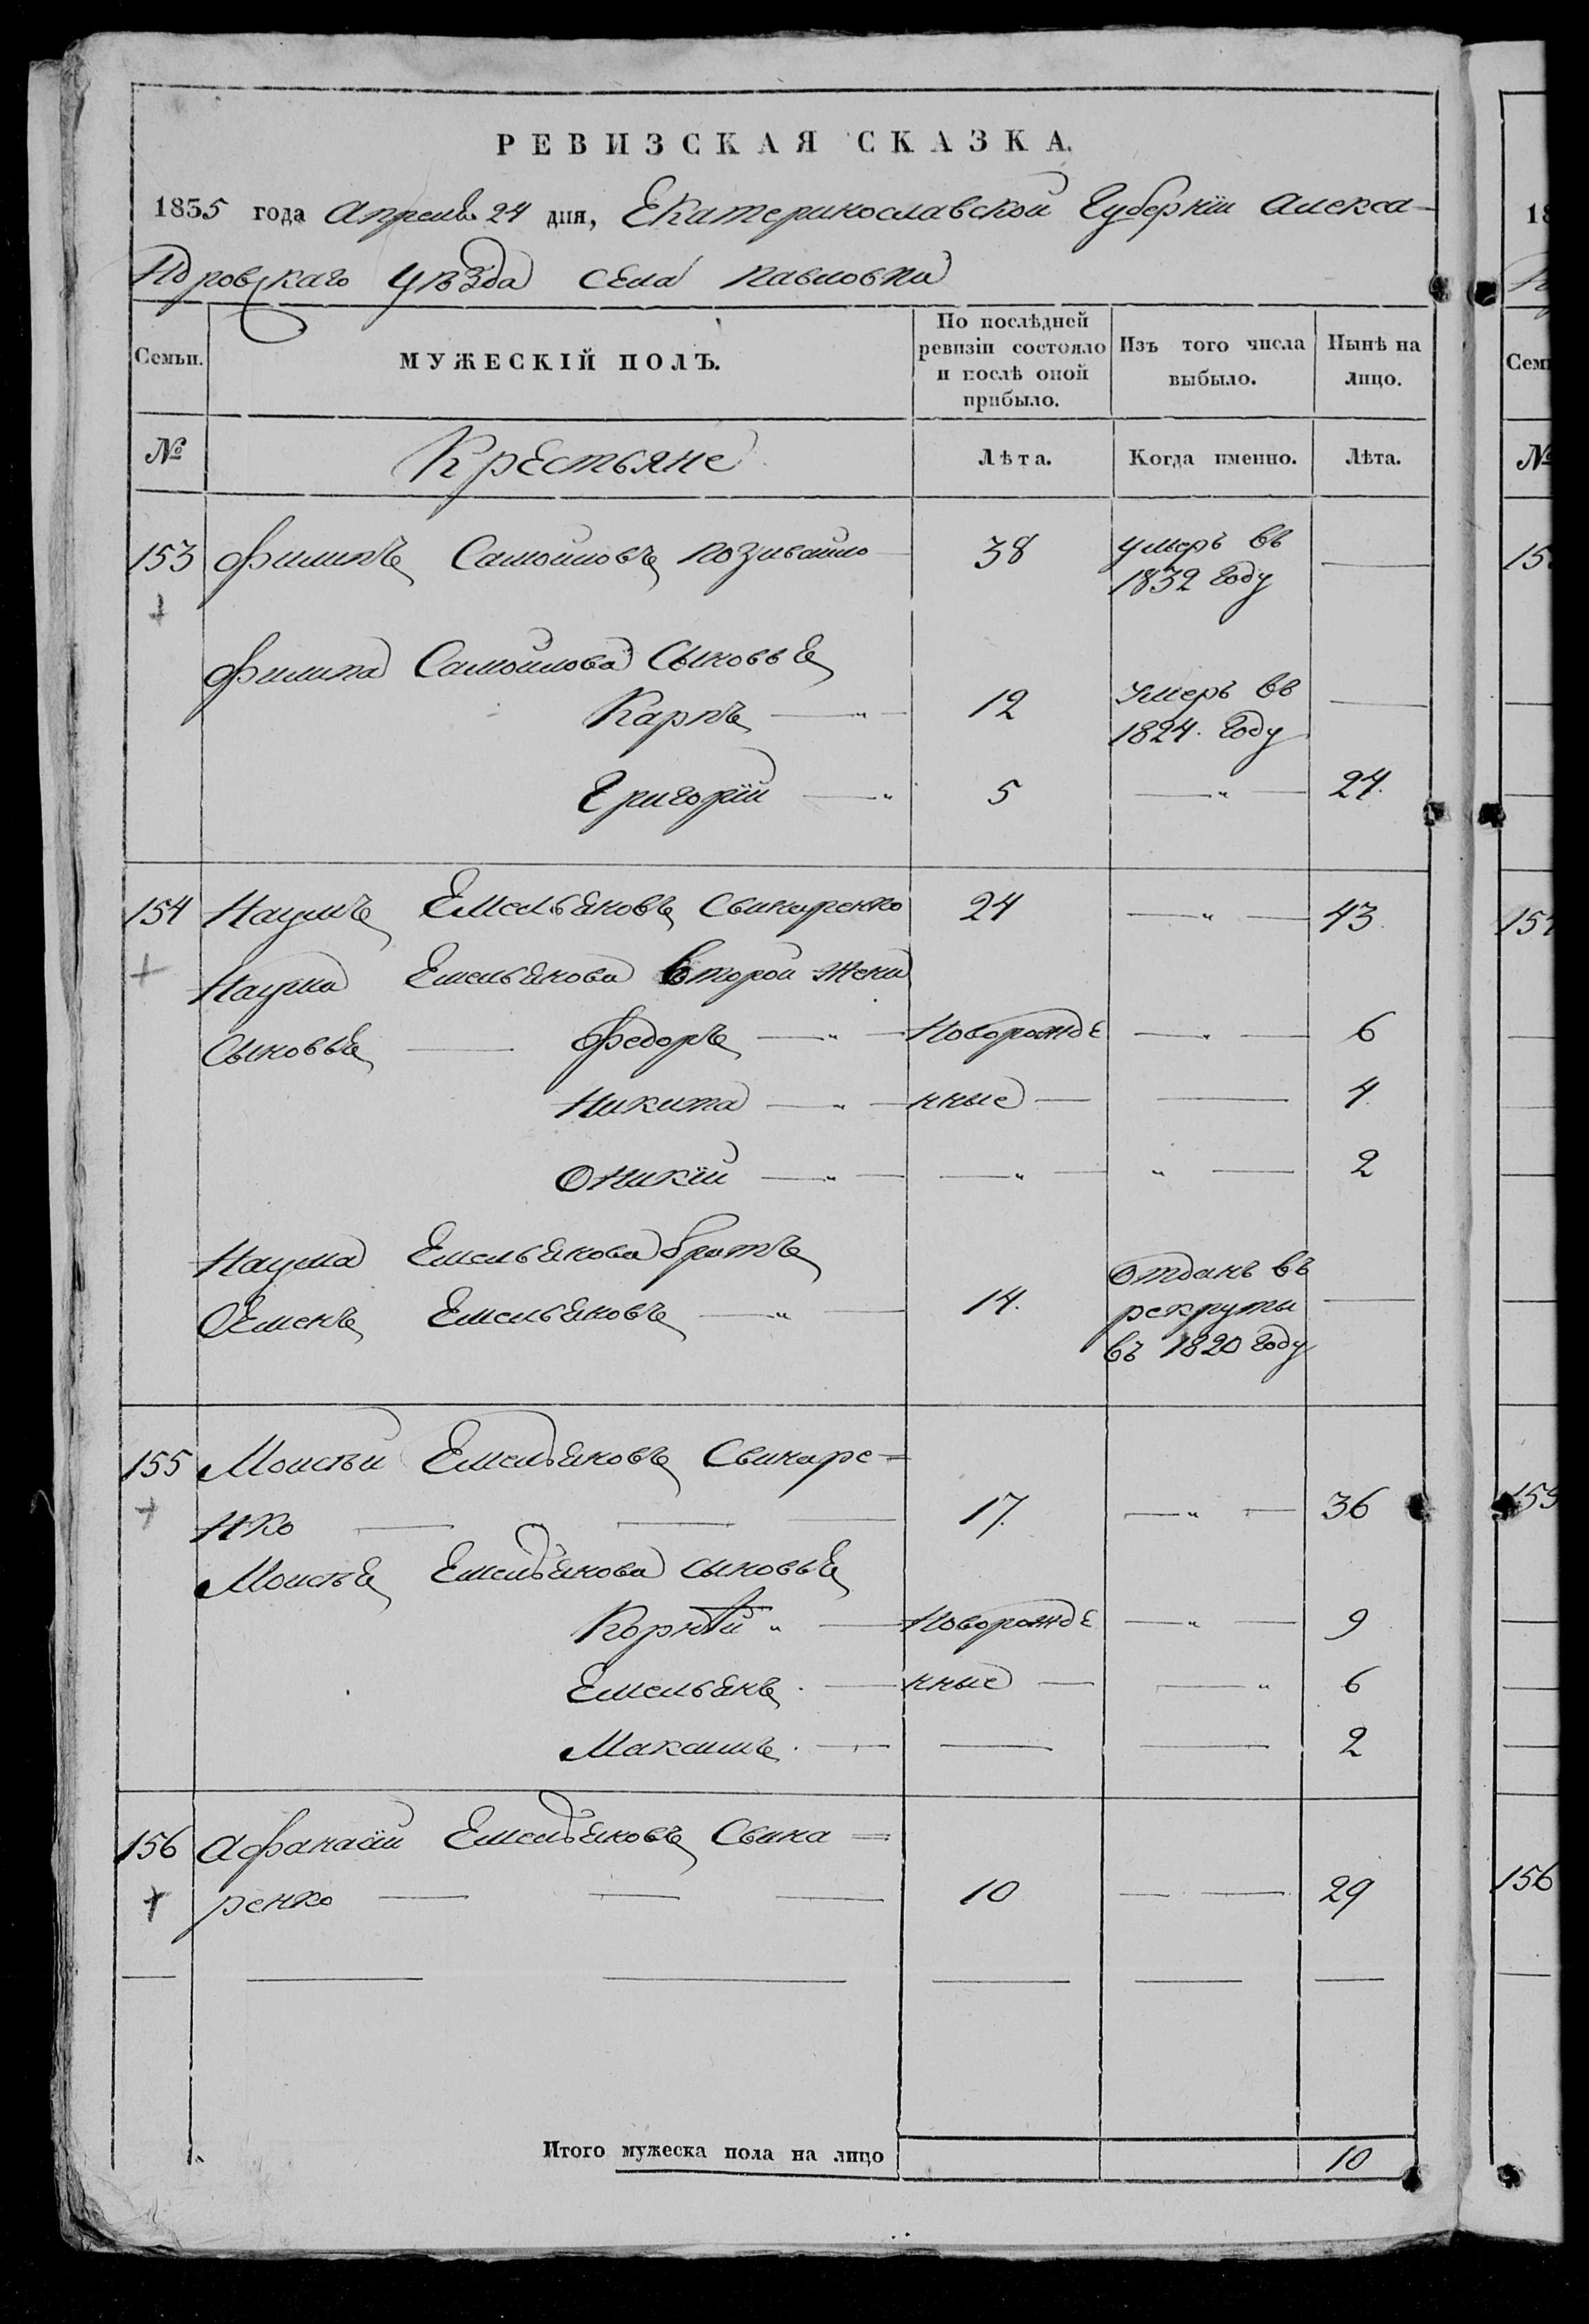 РЕВИЗСКАЯ СКАЗКА.
1835 года Апреля 24 дня, Екатеринославской Губерніи Алекса-
ндровскаго Уѣзда села Павловки
Семьи. МУЖЕСКІЙ ПОЛЪ. По послѣдней ревизіи состояло и послѣ оной прибыло. Изъ того числа выбыло. Нынѣ на лицо.
№ Крестьяне Лѣта. Когда именно. Лѣта.
153 Филипъ Самойловъ 38 умеръ въ 1832 Году —
Филипа Самойлова Сыновья
Карпъ 12 Умеръ въ 1824. Году —
Григорій 5 — " — 24.
154 Наумъ Емельяновъ Свинаренко 24 — " — 43.
Наума Емельянова второй жены
Сыновья — Федоръ — " — Новорожде — " — 6
Никита — " — нные — — 4.
Оникій — " — — " — " — 2
Наума Емельянова братъ
Семенъ Емельяновъ — " — 14. Отданъ въ рекруты въ 1820 Году —
155 Моисѣй Емельяновъ Свинаре=
нко — — — 17. — " — 36
Моисѣя Емельянова сыновья
Корнѣй " — Новорожде — " — 9
Емельянъ. — нные — — " 6
Максимъ. — — — 2
156 Афанасій Емельяновъ Свина=
ренко — — — 10 — . — 29
Итого мужеска пола на лицо 10
18
Сем
№
15
154
155
156